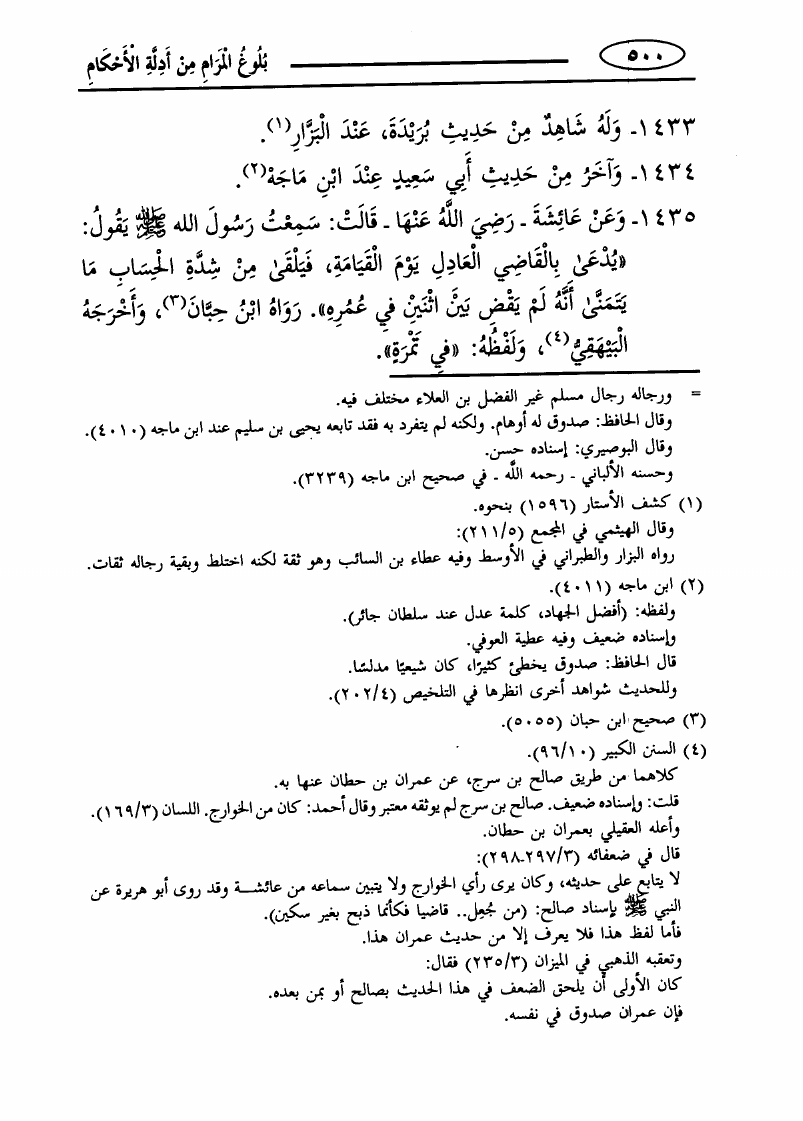 ٥٠٠ بُلُوغُ الْمَرَامِ مِنْ أَدِلَّةِ الْأَحْكَامِ
١٤٣٣ـ وَلَهُ شَاهِدٌ مِنْ حَدِيثِ بُرَيْدَةَ، عَنْدَ الْبَزَّارِ(١).
١٤٣٤ـ وَآخَرُ مِنْ حَدِيثِ أَبِي سَعِيدٍ عِنْدَ ابْنِ مَاجَهْ(٢).
١٤٣٥ـ وَعَنْ عَائِشَةَ ـ رَضِيَ اللَّهُ عَنْهَا ـ قَالَتْ: سَمِعْتُ رَسُولَ الله ﷺ يَقُولُ:
«يُدْعَىٰ بِالْقَاضِي الْعَادِلِ يَوْمَ الْقِيَامَةِ، فَيَلْقَىٰ مِنْ شِدَّةِ الْحِسَابِ مَا
يَتَمَنَّىٰ أَنَّهُ لَمْ يَقْضِ بَيْنَ اثْنَيْنِ فِي عُمُرِهِ». رَوَاهُ ابْنُ حِبَّانَ(٣)، وَأَخْرَجَهُ
الْبَيْهَقِيُّ(٤)، وَلَفْظُهُ: «فِي تَمْرَةٍ».
= ورجاله رجال مسلم غير الفضل بن العلاء مختلف فيه.
وقال الحافظ: صدوق له أوهام. ولكنه لم يتفرد به فقد تابعه يحيى بن سليم عند ابن ماجه (٤٠١٠).
وقال البوصيري: إسناده حسن.
وحسنه الألباني ـ رحمه اللَّه ـ في صحيح ابن ماجه (٣٢٣٩).
(١) كشف الأستار (١٥٩٦) بنحوه.
وقال الهيثمي في المجمع (٢١١/٥):
رواه البزار والطبراني في الأوسط وفيه عطاء بن السائب وهو ثقة لكنه اختلط وبقية رجاله ثقات.
(٢) ابن ماجه (٤٠١١).
ولفظه: (أفضل الجهاد، كلمة عدل عند سلطان جائر).
وإسناده ضعيف وفيه عطية العوفي.
قال الحافظ: صدوق يخطئ كثيرًا، كان شيعيًا مدلسًا.
وللحديث شواهد أخرى انظرها في التلخيص (٢٠٢/٤).
(٣) صحيح ابن حبان (٥٠٥٥).
(٤) السنن الكبير (٩٦/١٠).
كلاهما من طريق صالح بن سرج، عن عمران بن حطان عنها به.
قلت: وإسناده ضعيف. صالح بن سرج لم يوثقه معتبر وقال أحمد: كان من الخوارج. اللسان (١٦٩/٣).
وأعله العقيلي بعمران بن حطان.
قال في ضعفائه (٢٩٧/٣ـ٢٩٨):
لا يتابع على حديثه، وكان يرى رأي الخوارج ولا يتبين سماعه من عائشة وقد روى أبو هريرة عن
النبي ﷺ بإسناد صالح: (من جُعِل.. قاضيا فكأنما ذبح بغير سكين).
فأما لفظ هذا فلا يعرف إلا من حديث عمران هذا.
وتعقبه الذهبي في الميزان (٢٣٥/٣) فقال:
كان الأولى أن يلحق الضعف في هذا الحديث بصالح أو بمن بعده.
فإن عمران صدوق في نفسه.